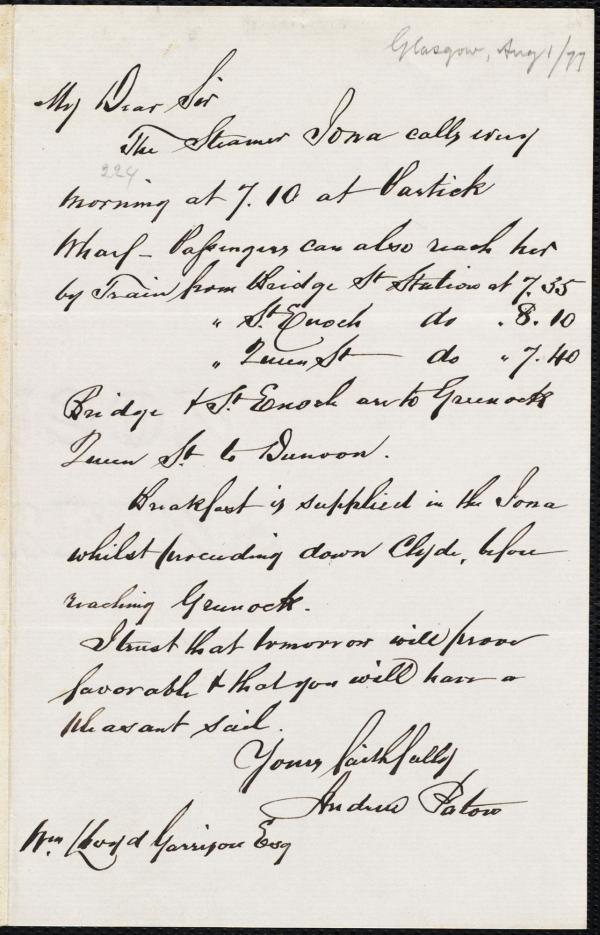 Glasgow, Aug 1/77
My Dear Sir
The Steamer Iona calls every
224
morning at 7.10 at Partick
Wharf - Passengers can also reach her
by Train from Bridge St Station at 7.35
" St. Enoch do " 8.10
" Queen St do " 7.40
Bridge & St. Enoch are to Greenock
Queen St. to Dunoon.
Breakfast is supplied in the Iona
whilst proceeding down Clyde, before
reaching Greenock.
I trust that tomorrow will prove
favorable & that you will have a
pleasant sail.
Yours faithfully
Andrew Paton
Wm Lloyd Garrison Esq